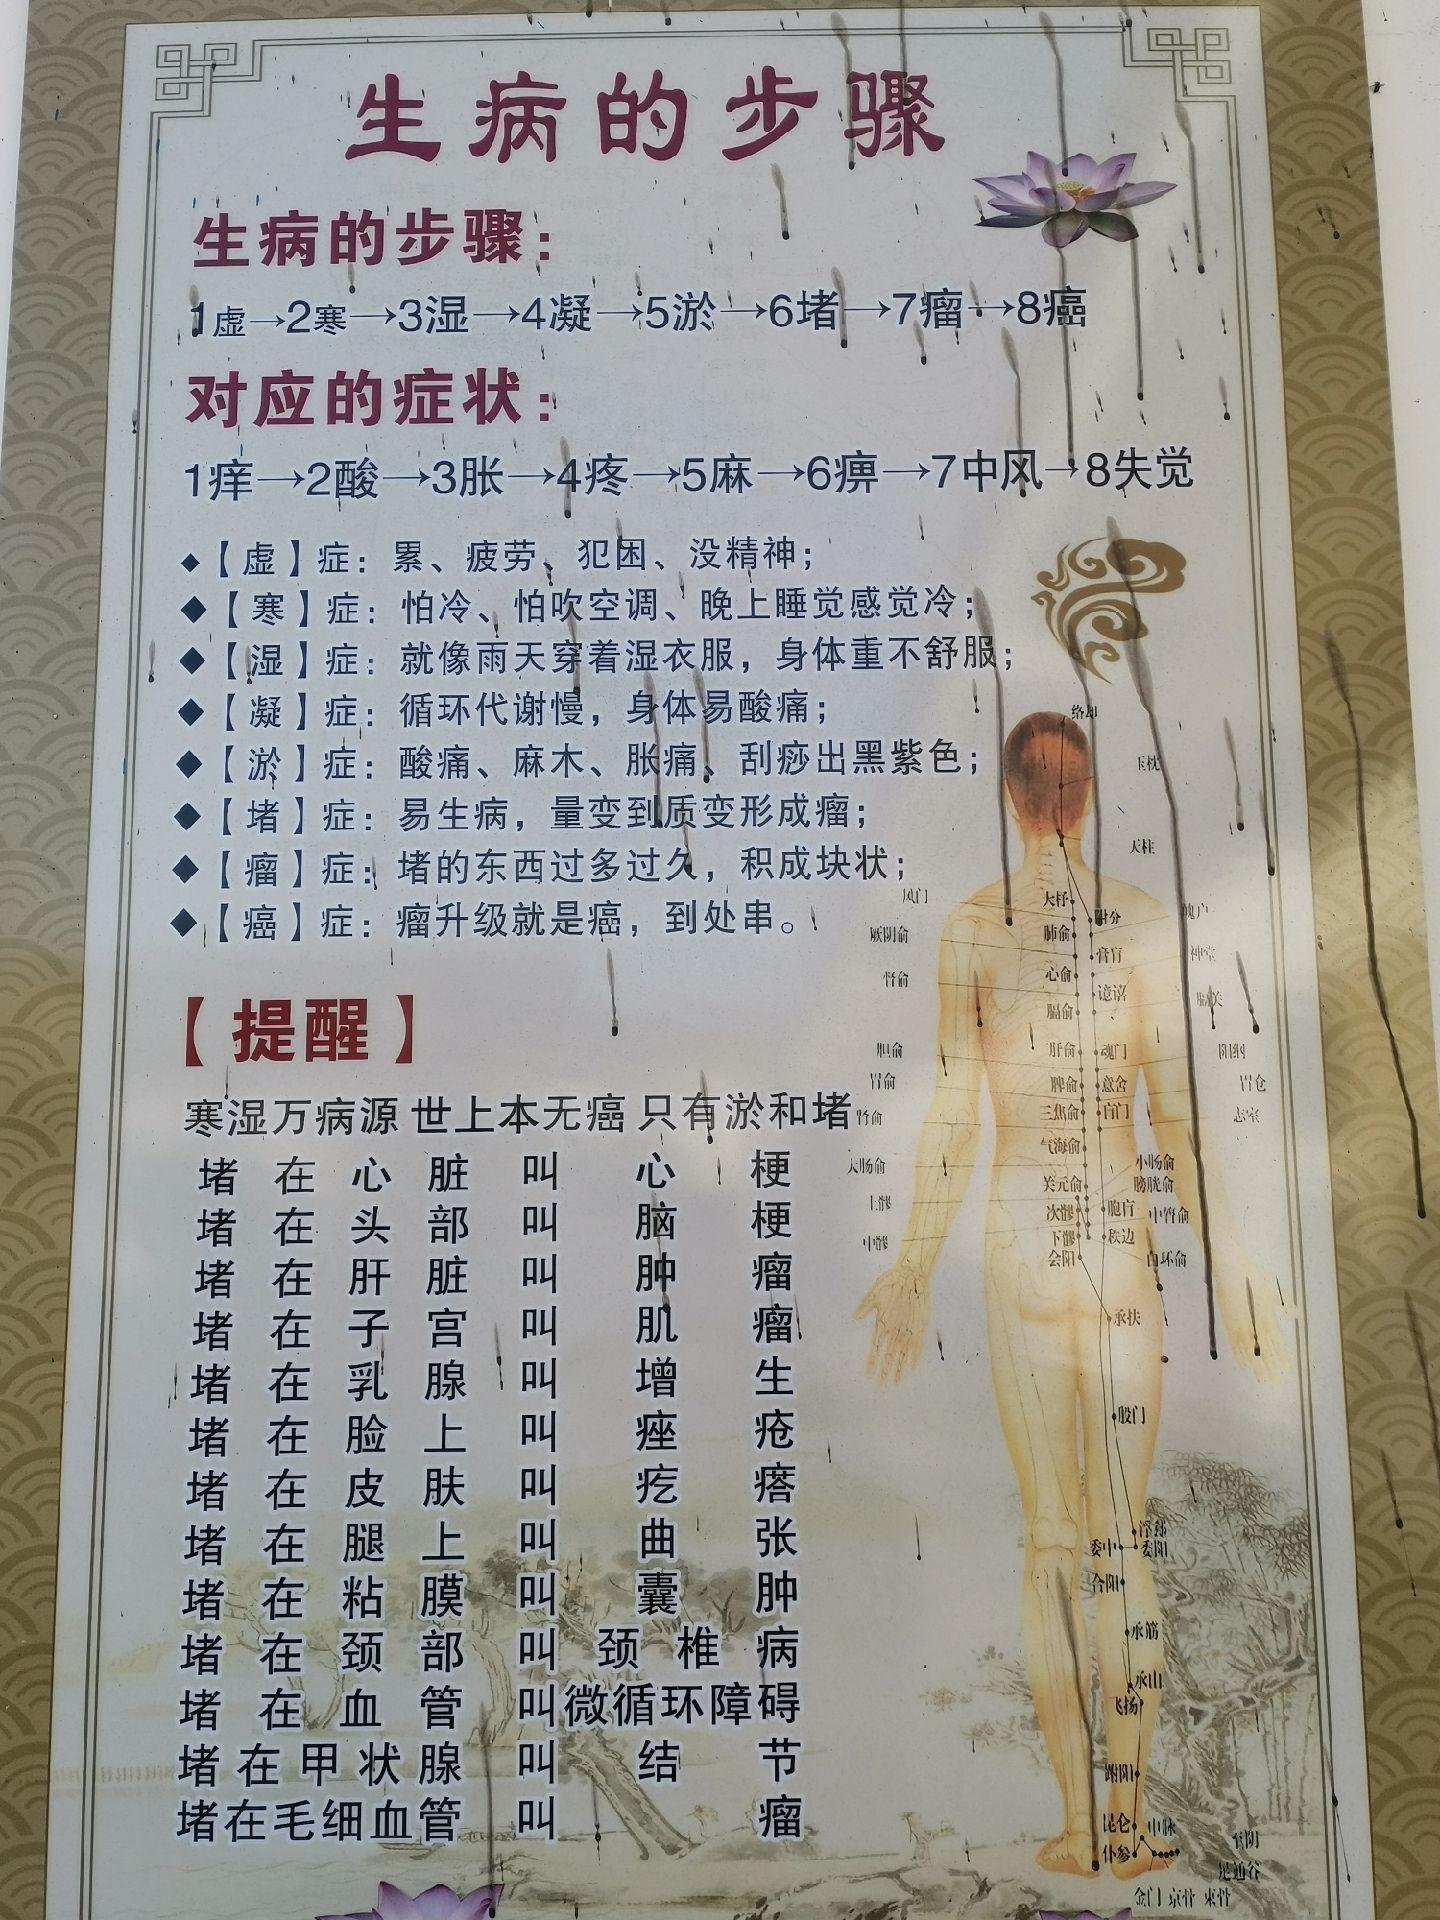 生病的步骤
生病的步骤：
1虚→2寒→3湿→4凝→5淤→6堵→7瘤→8癌
对应的症状：
1痒→2酸→3胀→4疼→5麻→6痹→7中风→8失觉
◆【虚】症：累、疲劳、犯困、没精神；
◆【寒】症：怕冷、怕吹空调、晚上睡觉感觉冷；
◆【湿】症：就像雨天穿着湿衣服，身体重不舒服；
◆【凝】症：循环代谢慢，身体易酸痛；
◆【淤】症：酸痛、麻木、胀痛、刮痧出黑紫色；
◆【堵】症：易生病，量变到质变形成瘤；
◆【瘤】症：堵的东西过多过久，积成块状；
◆【癌】症：瘤升级就是癌，到处串。
【提醒】
寒湿万病源 世上本无癌 只有淤和堵
堵在心脏叫心梗
堵在头部叫脑梗
堵在肝脏叫肿瘤
堵在子宫叫肌瘤
堵在乳腺叫增生
堵在脸上叫痤疮
堵在皮肤叫疙瘩
堵在腿上叫曲张
堵在粘膜叫囊肿
堵在颈部叫颈椎病
堵在血管叫微循环障碍
堵在甲状腺叫结节
堵在毛细血管叫瘤
络却
玉枕
天柱
风门 大杼 附分 魄户
厥阴俞 肺俞 膏肓 神堂
肾俞 心俞 譩譆 膈关
膈俞
胆俞 肝俞 魂门 阳纲
胃俞 脾俞 意舍 胃仓
肾俞 三焦俞 肓门 志室
气海俞
大肠俞 关元俞 小肠俞
膀胱俞
上髎 次髎 胞肓 中膂俞
中髎 下髎 秩边
会阳 白环俞
承扶
殷门
浮郄
委中 委阳
合阳
承筋
承山
飞扬
跗阳
昆仑 申脉
仆参 至阴
足通谷
金门 京骨 束骨